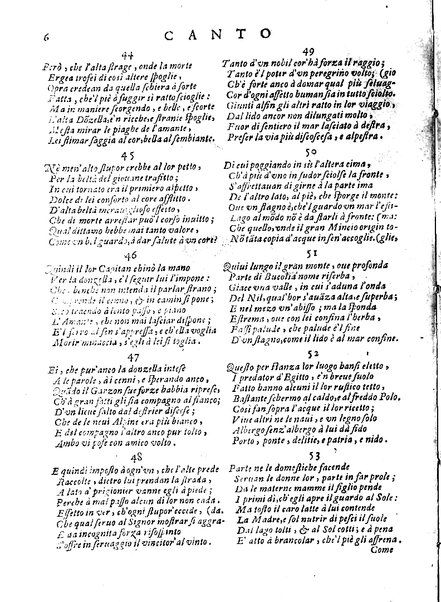 6 CANTO
44
Però, che l'alta strage, onde la morte
Ergea trofei di così altere spoglie,
Opra credean da quella schiera à forte
Fatta, che'l piè à fuggir sì ratto scioglie:
Ma in maniere scorgendo, e belle, e scorte
L'alta Dőzella, e'n ricche, e strane spoglie,
Mesta mirar le piaghe de l'amante,
Lei stimar saggia al cor, bella al sembiante.
45
Nè men'alto stupor crebbe al lor petto,
Per la beltà del giouane trafitto;
In cui tornato era il primiero aspetto
Dolce di lei conforto al core afflitto.
D'alta beltà merauiglioso effetto,
Che di morte arrestar può'l corso inuitto;
Qual dittamo hebbe mai tanto valore,
Come vn bel guardo, à dar salute à vn core?
46
Quindi il lor Capitan chinò la mano
Ver la donzella, e'l seguir lui l'impone:
Che benche non intenda il parlar strano;
Scorge i cenni, e in camin si pone;
tenendo à lento passo, e piano
L'Amante, che non mai lasciar dispone;
E'l fiero al sen s'appressa, e s'ella voglia
Morir minaccia, s'egli à lei si toglia.
47
Ei, che pur'anco la donzella intese
A le parole, ai cenni, e sperando anco,
Quando il Garzon sue forze habbia riprese,
Ch'à gran fatti gli sia compagno al fianco;
D'un lieue salto dal destrier discese;
Che de le neui Alpine era più bianco,
E del compagno l'altro anco pur tolto,
Ambo vi pose con amico volto.
48
E quindi imposto à ogn'vn, che l'alte prede
Raccolte, dietro lui prendan la strada,
A lato a' prigionier vanne egli à piede;
Perche à mai passo alcun di lor non cada.
Effetto in ver, ch'ogni stupor eccede, (da.
Che qual seruo al Signor mostrar si aggra-
E da incognita forza risospinto
Soffre in seruaggio il vincitor'al vinto.
49
Tanto d'vn nobil cor'hà forza il raggio;
Tanto è'l poter d'vn peregrino volto; (gio
Ch'è forte anco à domar qual più seluag-
Cor d'ogni affetto humano sia in tutto sciolto.
Giunti alfin gli altri ratto in lor viaggio,
Dal lido ancor non dilungati molto,
Fuor di sentiero il mar lasciato à destra,
Preser la via più discoscesa, e alpestra.
50
Di cui poggiando in sù l'altera cima,
Ch'à più d'vno in sudor sciolse la fronte,
S'affrettauan di girne à la parte ima
De l'altro lato, al piè, che sporge il monte:
Oue vn stagno è, che'l guardo vn mar l'esti-
Lago al modo nò è da starli à fronte: (ma:
Còr quello, onde il gran Mincio origin to-
Nò tàta copia d'acque in sen'accoglie. (glie,
51
Quiui lungo il gran monte, oue profonda
Parte di Bucolia nome riserba,
Giace vna valle, in cui s'aduna l'onda
Del Nil, qual'hor s'auāza alta, e superba;
E nel mezo vn'abisso; ma la sponda
Estrema, oue con lei confina l'herba,
Fassi palude, che palude è'l fine
D'vn stagno, come'l lido è al mar confine.
52
Questo per stanza lor luogo bansi eletto,
I predator d'Egitto, e'n breue suolo
Fatto banno alcuni il lor rustico tetto,
Bastante schermo al caldo, al freddo Polo.
Così fan sopra l'acque il lor ricetto;
Viue altri ne le naui, e vn legno solo
Albergo sent'albergo à lui dà lido
Porto, ponte, delitie, e patria, e nido.
53
Parte ne le domestiche facende
Seruan le donne lor, parte in far prole;
Da materne mamme il figlio pende
I primi dì, ch'egli apre il guardo al Sole:
Ma tosto il caro latte à lui contende
La Madre, e sol nutrir di pesci il suole
Dal lago tolti, & al Sol cotti; e à pena
E' atto à brancolar, che'l piè gli affrena.
Come